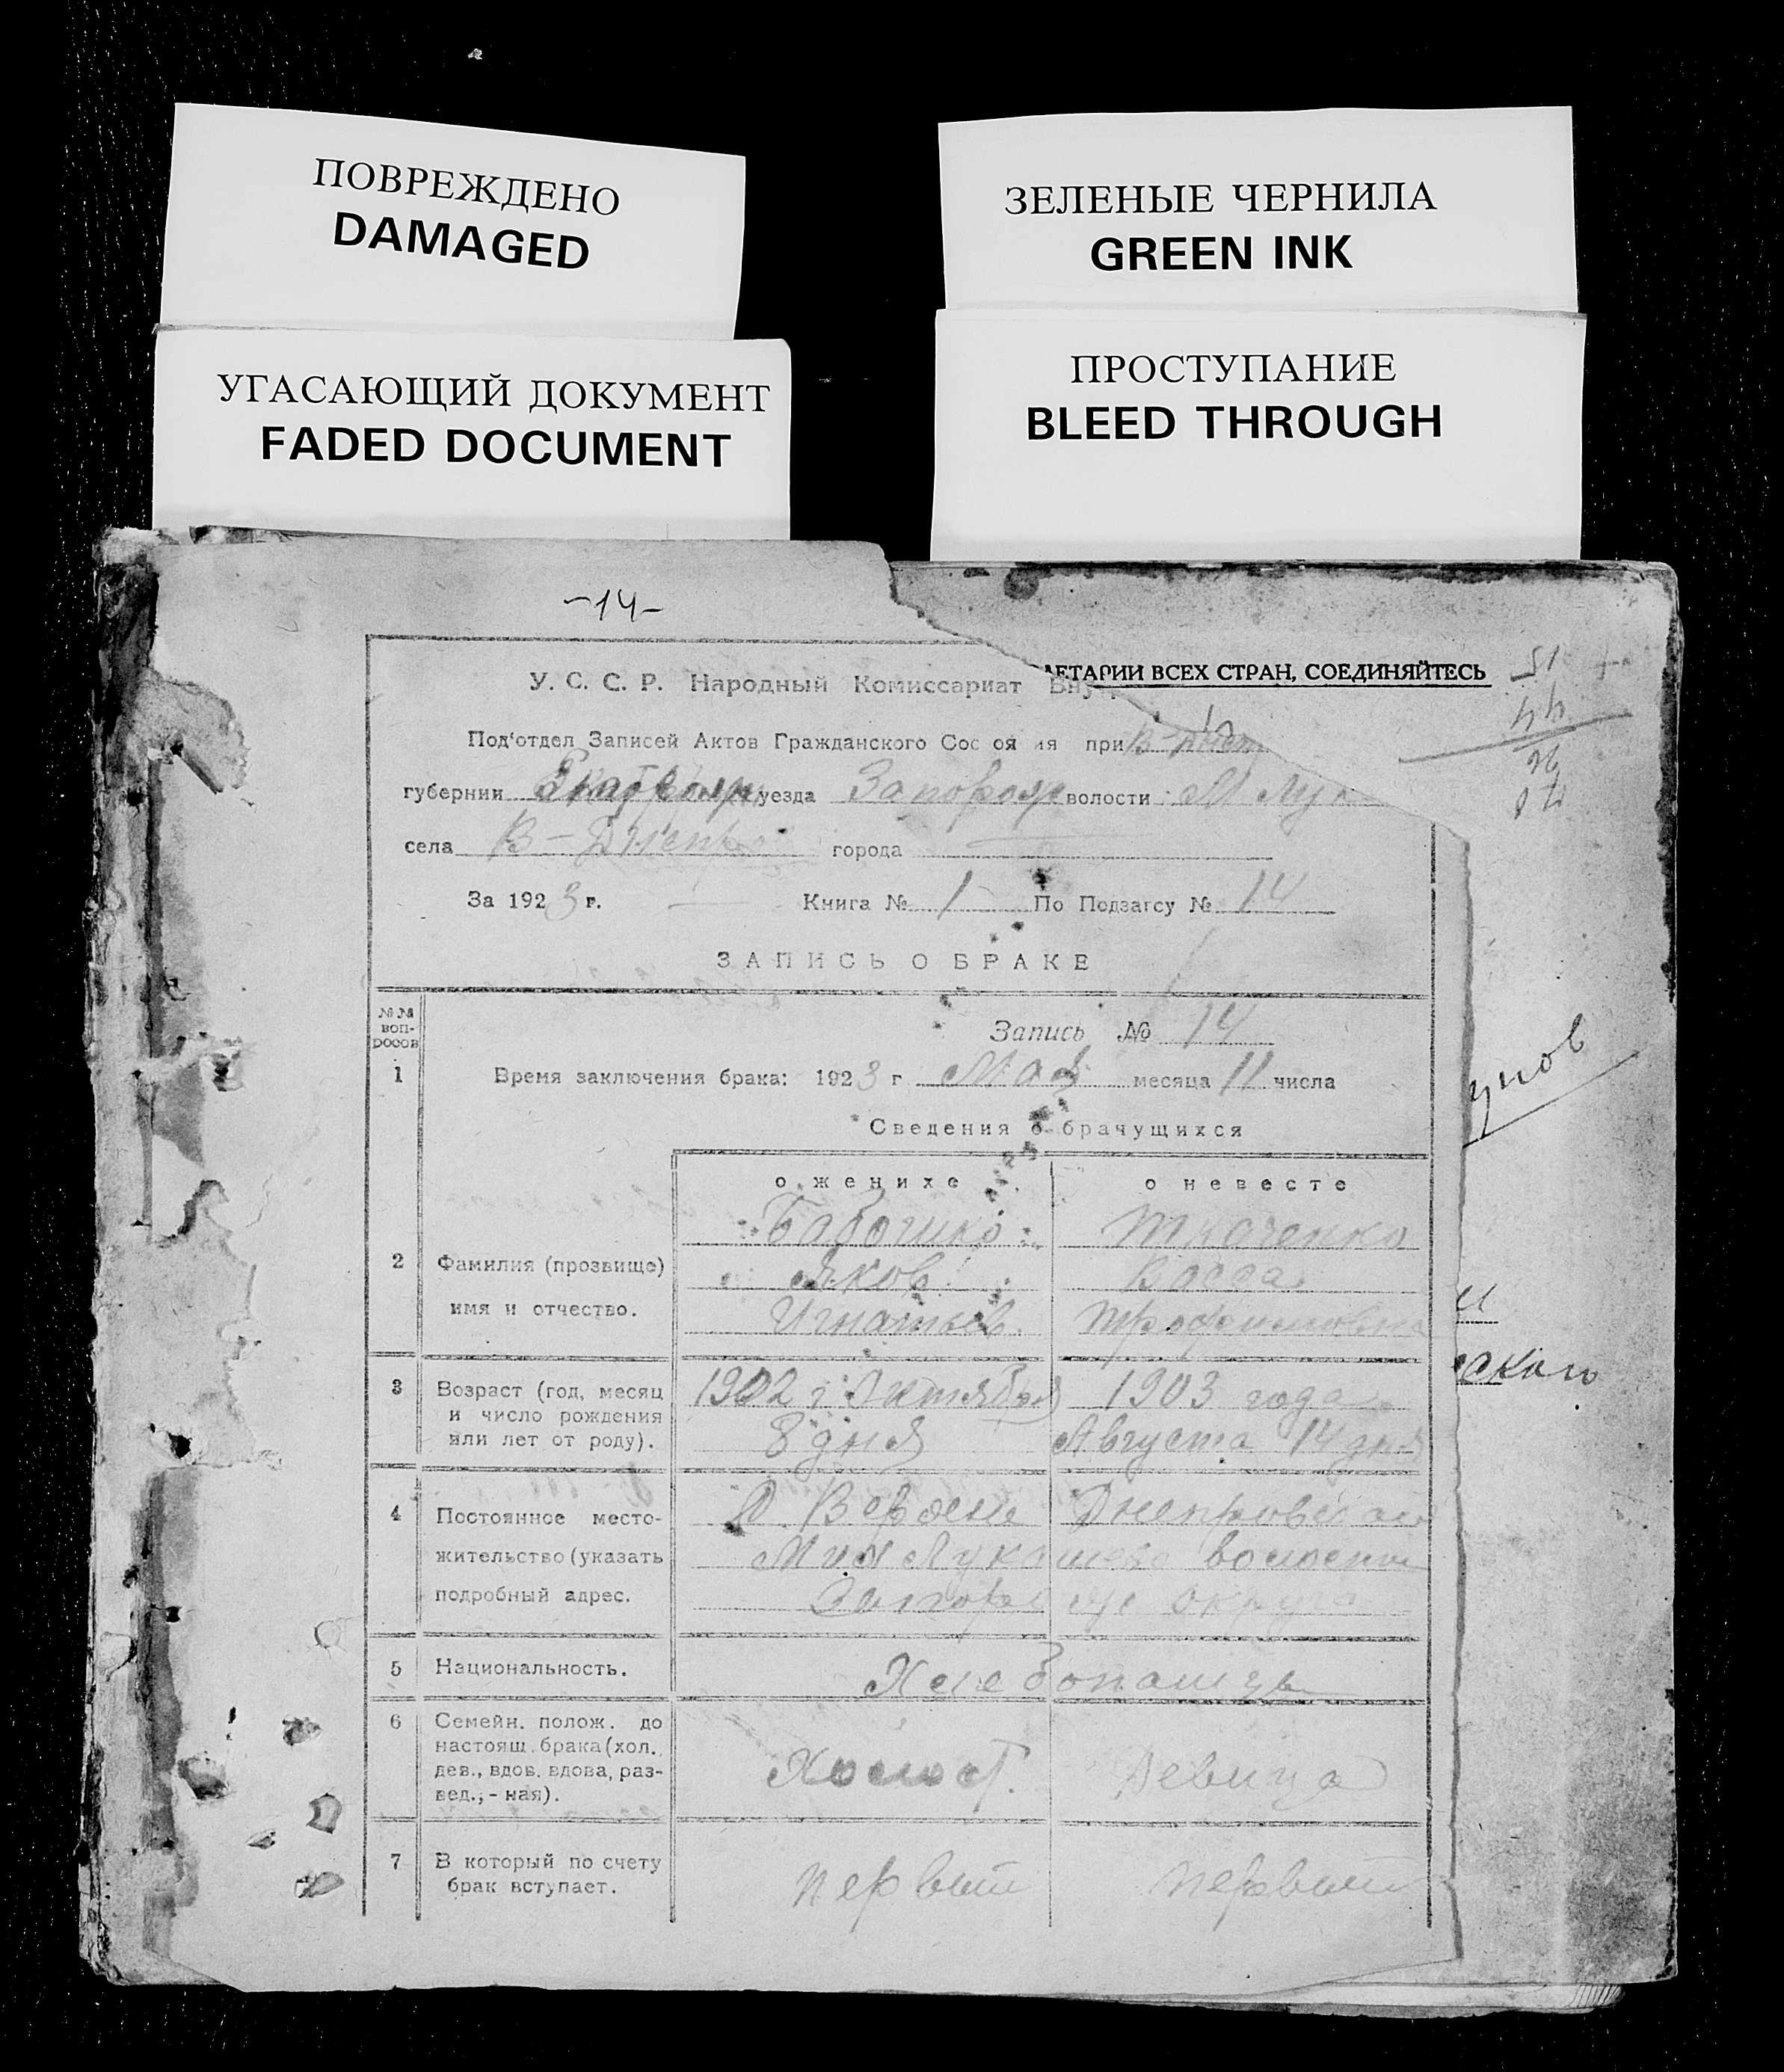 ПОВРЕЖДЕНО
DAMAGED
ЗЕЛЕНЫЕ ЧЕРНИЛА
GREEN INK
УГАСАЮЩИЙ ДОКУМЕНТ
FADED DOCUMENT
ПРОСТУПАНИЕ
BLEED THROUGH
-14-
ЛЕТАРИИ ВСЕХ СТРАН, СОЕДИНЯЙТЕСЬ
У. С. С. Р. Народный Комиссариат Вну
Под'отдел Записей Актов Гражданского Состояния при
губернии уезда Запорож волости М Лук
села В-Днепр города
За 1923 г. Книга № 1 По Подзагсу № 14
ЗАПИСЬ О БРАКЕ
№№ воп-
росов
Запись № 14
1 Время заключения брака: 1923 г Мая месяца 11 числа
Сведения о брачущихся
о женихе о невесте
Бабошко Ткаченко
2 Фамилия (прозвище) Яков Васса
имя и отчество. Игнатьев Трофимовна
3 Возраст (год, месяц 1902 г Октября 1903 года
и число рождения
или лет от роду). 8 дня Августа 14 дня
4 Постоянное место- Д. Верхне Днепровка
жительство (указать Мих Лукашево волости
подробный адрес. округа
5 Национальность. Хлебопашцы
6 Семейн. полож. до
настоящ. брака (хол.,
дев., вдов. вдова, раз- Холост. Девица
вед., - ная).
7 В который по счету
брак вступает. первый первый